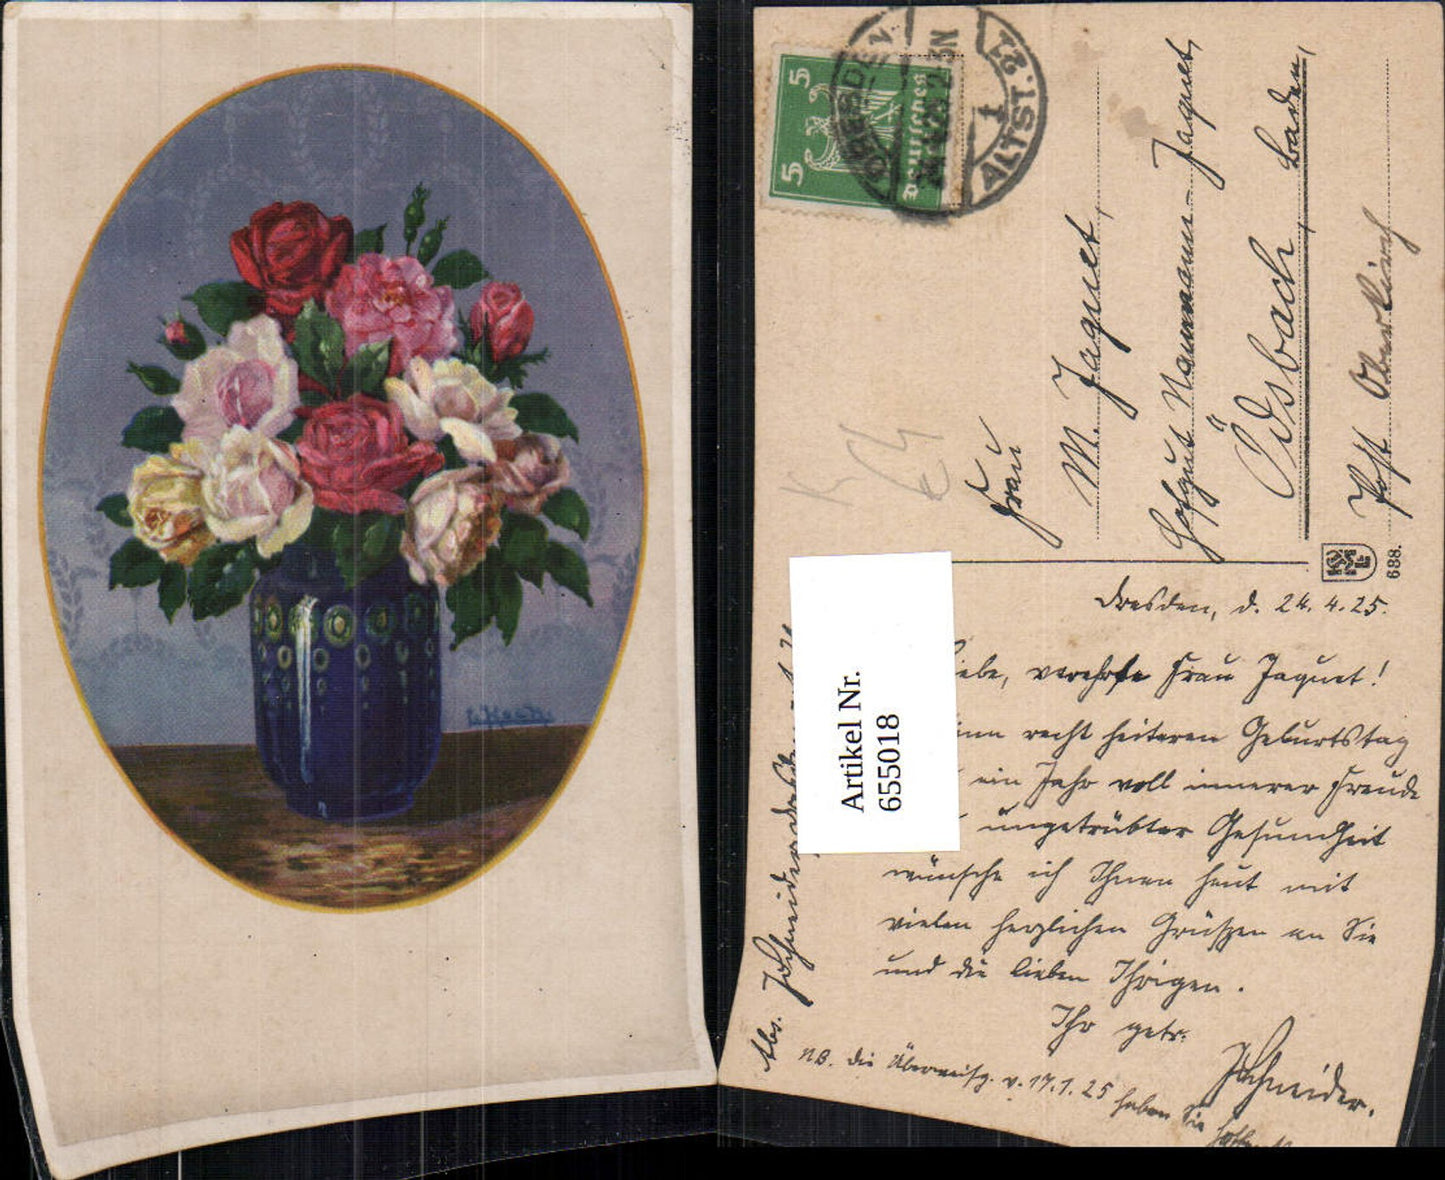 L. Hack
5
5
Deutsches
DRESDEN
ALTST. 1
24.4.25
Frau
M. Jaquet,
Hofgut Naumann-Jaquet,
Ödsbach, Baden,
Post Oberkirch
688.
Artikel Nr.
655018
Dresden, d. 24.4.25.
Liebe, verehrte Frau Jaquet!
recht heiteren Geburtstag
ein Jahr voll innerer Freude
ungetrübter Gesundheit
wünsche ich Ihnen heut mit
vielen herzlichen Grüßen an Sie
und die lieben Ihrigen.
Ihr getr.
Schneider.
NB. Die Überweisg. v. 17.1.25 haben Sie
Abs. Schneider, Dresden